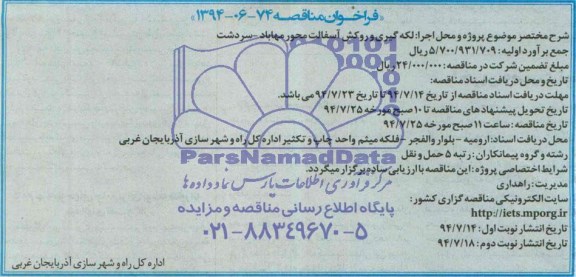 «فراخوان مناقصه ۷۴-۰۶-۱۳۹۴»
شرح مختصر موضوع پروژه و محل اجرا: لکه گیری و روکش آسفالت محور مهاباد - سردشت
جمع برآورد اولیه: ۵/۷۰۰/۹۳۱/۷۰۹ ریال
مبلغ تضمین شرکت در مناقصه: ۲۴/۰۰۰/۰۰۰ ریال
تاریخ و محل دریافت اسناد مناقصه:
مهلت دریافت اسناد مناقصه از تاریخ ۹۴/۷/۱۴ تا تاریخ ۹۴/۷/۲۳ می باشد.
تاریخ تحویل پیشنهادهای مناقصه تا ۱۰ صبح مورخه ۹۴/۷/۲۵
تاریخ مناقصه: ساعت ۱۱ صبح مورخه ۹۴/۷/۲۵
محل دریافت اسناد: ارومیه - بلوار والفجر - فلکه میثم واحد چاپ و تکثیر اداره کل راه و شهر سازی آذربایجان غربی
رشته و گروه پیمانکاران: رتبه ۵ حمل و نقل
ParsNamadData
شرایط اختصاصی پروژه: این مناقصه با ارزیابی ساده برگزار میگردد.
مرکز فرآوری اطلاعات پارس نماد داده ها
مدیریت: راهداری
سایت الکترونیکی مناقصه گزاری کشور:
پایگاه اطلاع رسانی مناقصه و مزایده
http://iets.mporg.ir
تاریخ انتشار نوبت اول: ۹۴/۷/۱۴
۰۲۱-۸۸۳۴۹۶۷۰-۵
تاریخ انتشار نوبت دوم: ۹۴/۷/۱۸
اداره کل راه و شهر سازی آذربایجان غربی